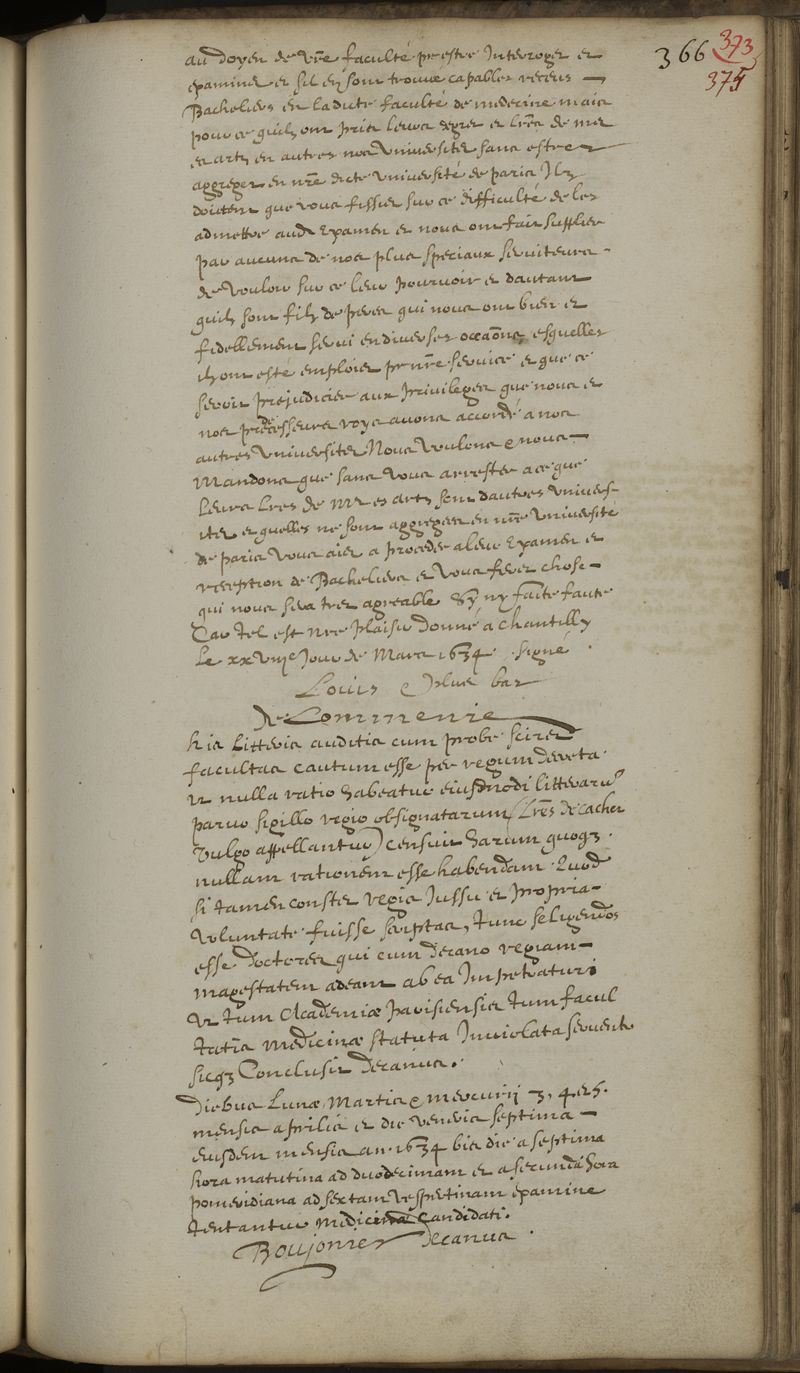 366 373
375
au doyen de vre faculté pr estre Interroger et
examiner et sil en sont trouvez capables receus
Bacheliers en ladicte faculté de medecine mais
pour ce quilz ont pris leurs degrez et lres de mes
es arts en autres nos Universitez sans estre
aggreger en nre dicte université de paris Ilz
doubtent que vous fissiez sur ce difficulté de les
admettre aud. Examen et nous ont fait supplier
par aucuns de nos plus speciaux serviteurs
de vouloir sur ce leur pourvoir et dautant
quilz sont filz de peres qui nous ont bien et
fidellement servi en diverses occaons esquelles
ilz ont esté emploiez pr nre service et que ce
seroit prejudicier aux privileges que nous et
nos predecesseurs roys avons accordé a nos
autres universitez Nous voulons & nous
Mandons que sans vous arrester a ce que
leurs lres de mes es arts sont dautres univers-
itez et quelles ne sont aggregees en nre université
de paris vous aiez a proceder a leur Examen et
reception de Bacheliers et vous ferez chose
qui nous sera tres agreable Sy ny faite faute
Car tel est nre plaisir donné a chantilly
le xxviije Jour de Mars 1634. signé
Louis & plus bas
De Lommenie
his litteris auditis cum probe sciret
facultas cautum esse per regum decreta
ut nulla ratio habeatur eiusmodi litterarum
parvo sigillo regio obsignatarum (lres de cachet
vulgo appellantur) censuit harum quoq3
nullam rationem esse habendam. Quod
si tamen constet regis Jussu et propria
voluntate fuisse scriptas, tunc seligendos
esse doctores qui cum decano regiam
magestatem adeant ab ea Impetraturi
ut tum Academiæ parisiensis tum facul
tatis medicinæ statuta Inviolata serventur
sicq3 Conclusit decanus.
Diebus Lunæ, Martis & mercurii 3, 4 et 5.
mensis aprilis et die veneris septima
eiusdem mensis an. 1634 bis die a septima
hora matutina ad duodecimam et a secunda hora
pomeridiana ad sextam vespertinam examine
tentantur medicinæ Candidati.
Boujonier decanus.